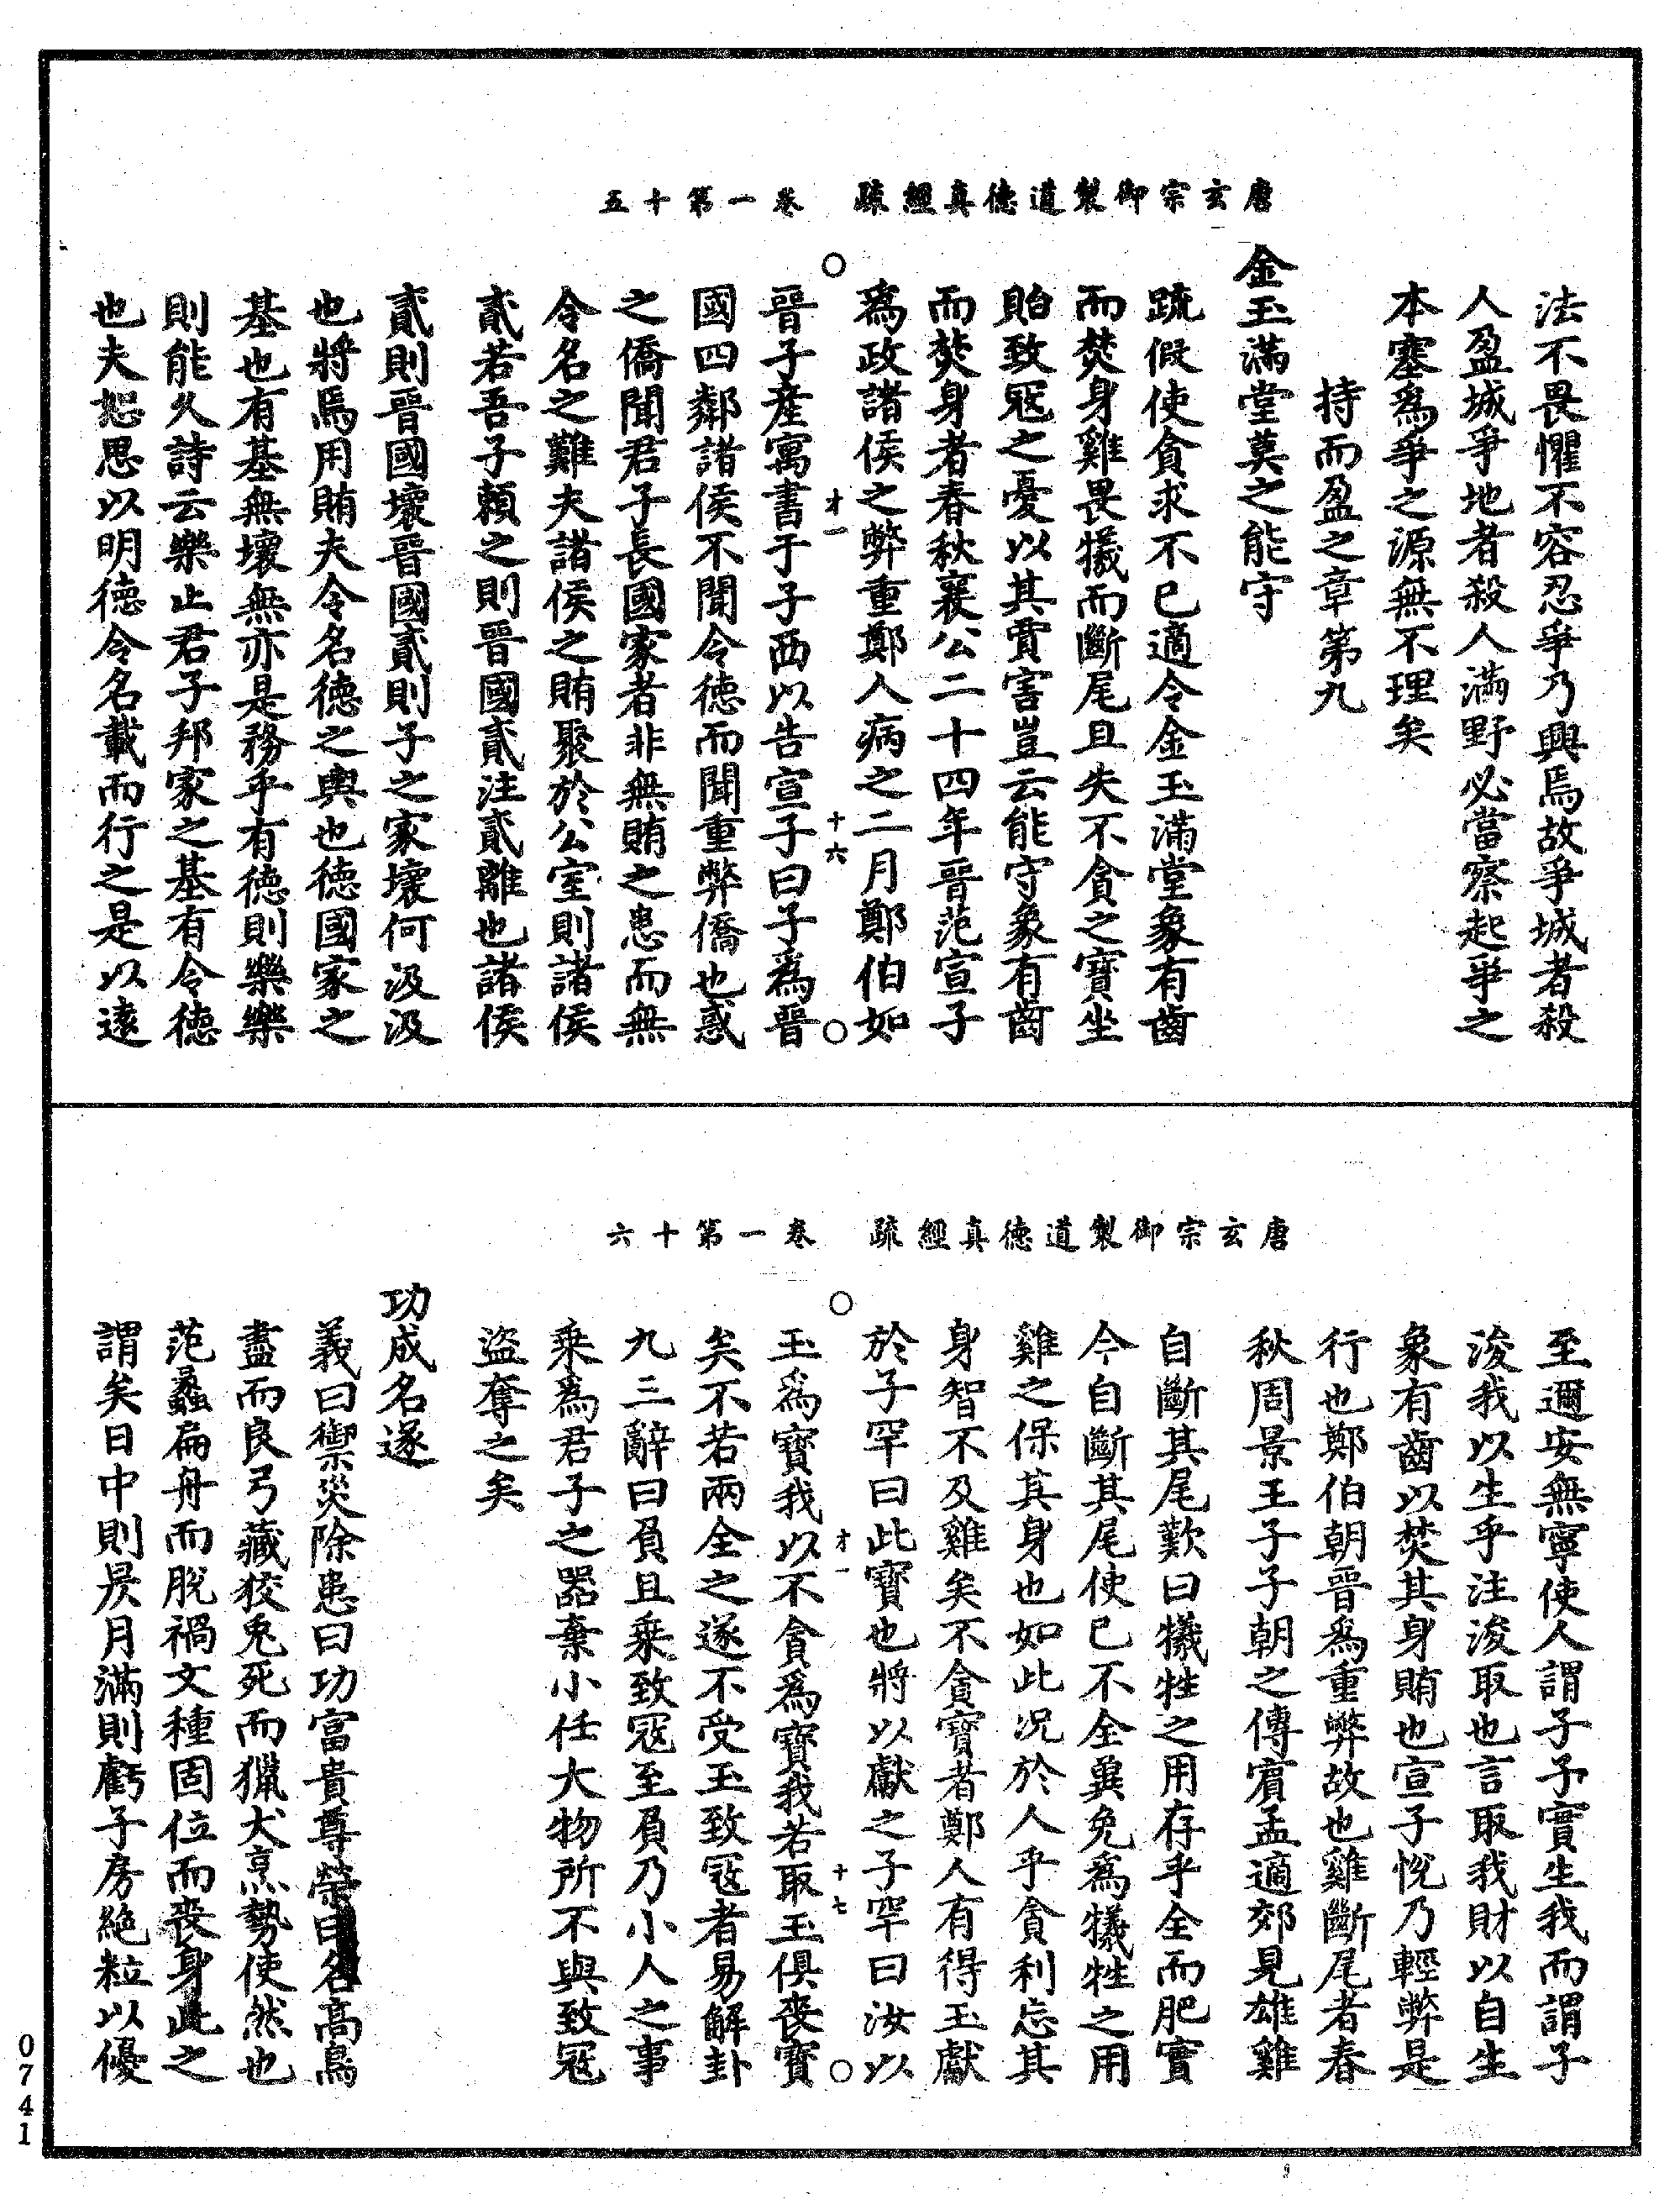 唐玄宗御製道德真經疏　卷一第十五
法不畏懼不容忍爭乃興焉故爭城者殺
人盈城爭地者殺人滿野必當察起爭之
本塞為爭之源無不理矣
持而盈之章第九
金玉滿堂莫之能守
疏假使貪求不已適令金玉滿堂象有齒
而焚身雞畏犧而斷尾且失不貪之寶坐
貽致寇之憂以其賈害豈云能守象有齒
而焚身者春秋襄公二十四年晉范宣子
為政諸侯之弊重鄭人病之二月鄭伯如
才一　十六
晉子產寓書于子西以告宣子曰子為晉
國四鄰諸侯不聞令德而聞重弊僑也惑
之僑聞君子長國家者非無賄之患而無
令名之難夫諸侯之賄聚於公室則諸侯
貳若吾子賴之則晉國貳注貳離也諸侯
貳則晉國壞晉國貳則子之家壞何汲汲
也將焉用賄夫令名德之輿也德國家之
基也有基無壞無亦是務乎有德則樂樂
則能久詩云樂止君子邦家之基有令德
也夫恕思以明德令名載而行之是以遠
唐玄宗御製道德真經疏　卷一第十六
至邇安無寧使人謂子子實生我而謂子
浚我以生乎注浚取也言取我財以自生
象有齒以焚其身賄也宣子悅乃輕弊是
行也鄭伯朝晉為重弊故也雞斷尾者春
秋周景王子子朝之傅賓孟適郊見雄雞
自斷其尾歎曰犧牲之用存乎全而肥實
今自斷其尾使已不全冀免為犧牲之用
雞之保其身也如此況於人乎貪利忘其
身智不及雞矣不貪寶者鄭人有得玉獻
於子罕曰此寶也將以獻之子罕曰汝以
才一　十七
玉為寶我以不貪為寶我若取玉俱喪寶
矣不若兩全之遂不受玉致寇者易解卦
九三辭曰負且乘致寇至負乃小人之事
乘為君子之器棄小任大物所不與致寇
盜奪之矣
功成名遂
義曰禦災除患曰功富貴尊榮曰名高鳥
盡而良弓藏狡兔死而獵犬烹勢使然也
范蠡扁舟而脫禍文種固位而喪身此之
謂矣日中則昃月滿則虧子房絕粒以優
0741